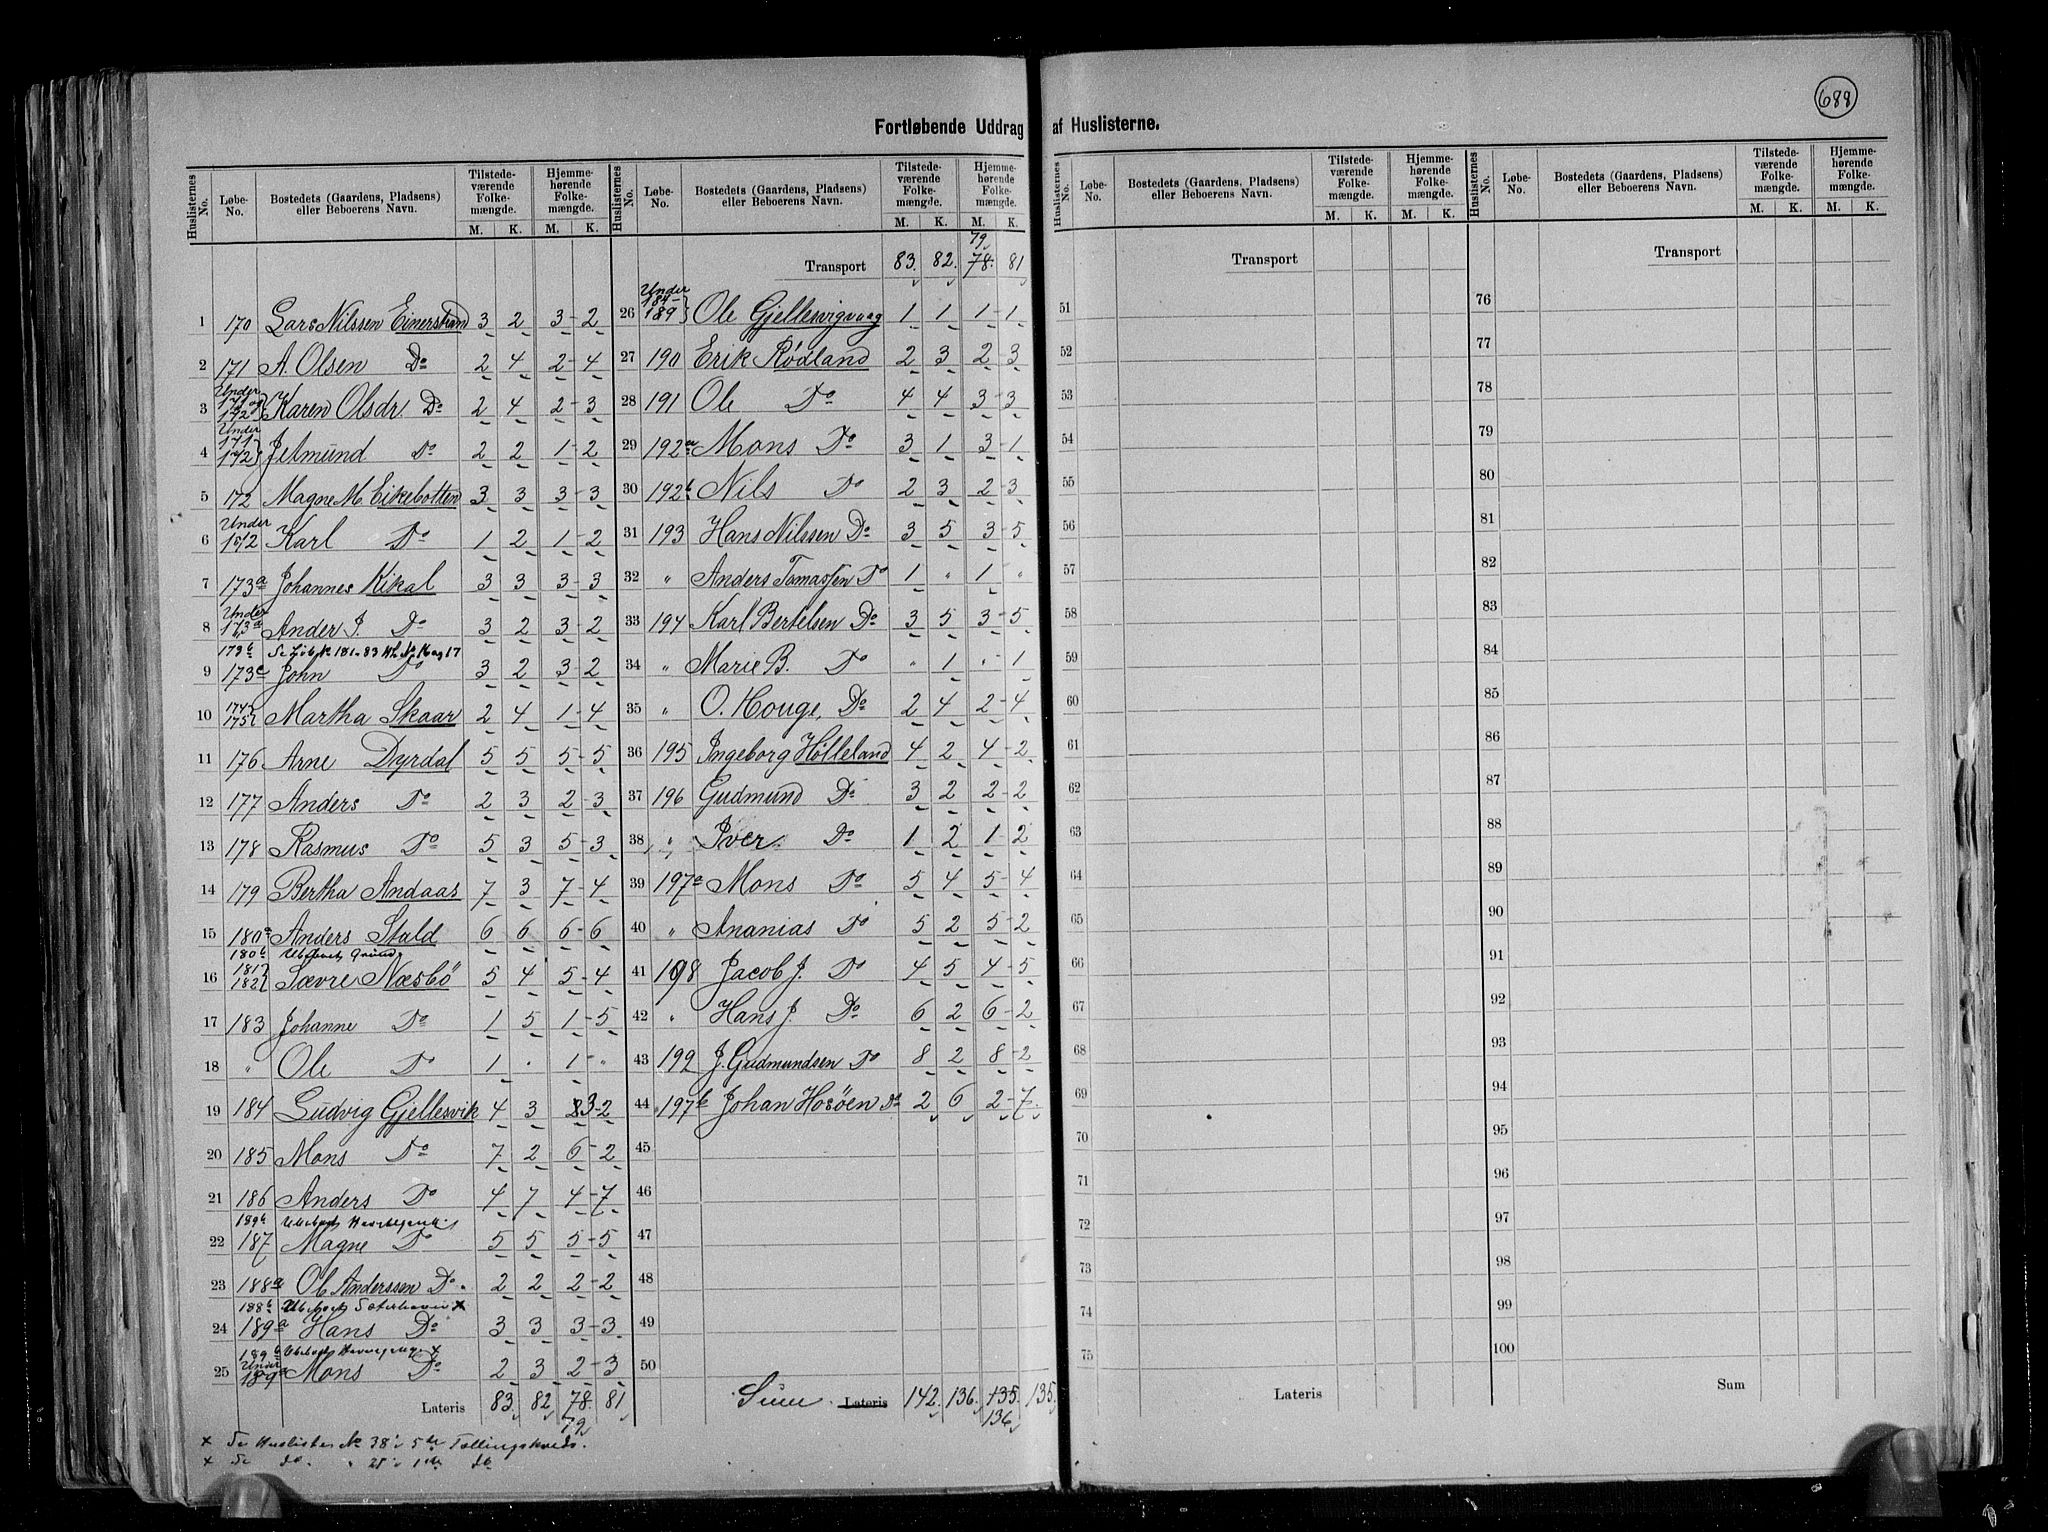 688
Fortløbende Uddrag af Huslisterne.
Huslisternes No. Løbe-No. Bostedets (Gaardens, Pladsens) eller Beboerens Navn. Tilstedeværende Folkemængde. Hjemmehørende Folkemængde.
M. K. M. K.
1 170 Lars Nilssen Einerstrand 3 2 3-2
2 171 A. Olsen Do 2 4 2-4
3 Under 171 og 172 Karen Olsdr. Do 2 4 2-3
4 Under 171 172 Jetmund Do 2 2 1-2
5 172 Magne M. Eikebotten 3 3 3-3
6 Under 172 Karl Do 1 2 1-2
7 173a Johannes Kikal 3 3 3-3
8 Under 173a Ander J. Do 3 2 3-2
173b Se Løb.No 181-83 Hl. No 16 og 17
9 173c John Do 3 2 3-2
10 174 175 Martha Skaar 2 4 1-4
11 176 Arne Dyrdal 5 5 5-5
12 177 Anders Do 2 3 2-3
13 178 Rasmus Do 5 3 5-3
14 179 Bertha Andaas 7 3 7-4
15 180a Anders Stald 6 6 6-6
180b Ubebyet Grund
16 181 182 Sævre Næsbö 5 4 5-4
17 183 Johanne Do 1 5 1-5
18 " Ole Do 1 " 1-"
19 184 Ludvig Gjellesvik 4 3 3-2
20 185 Mons Do 7 2 6-2
21 186 Anders Do 4 7 4-7
22 187 Magne Do 5 5 5-5
23 188a Ole Anderssen Do 2 2 2-2
188b Ubeboet
24 189a Hans Do 3 3 3-3
189b Ubeboet
25 Under 189a Mons Do 2 3 2-3
Lateris 83 82 78 81
79
× Se Husliste No 38 i 5te Tællingskreds.
× Se do. " 21 i 1ste do
Huslisternes No. Løbe-No. Bostedets (Gaardens, Pladsens) eller Beboerens Navn. Tilstedeværende Folkemængde. Hjemmehørende Folkemængde.
M. K. M. K.
79
Transport 83 82 78 81
26 Under 184-189 Ole Gjellesvigvaag 1 1 1-1
27 190 Erik Rødland 2 3 2-3
28 191 Ole Do 4 4 3-3
29 192a Mons Do 3 1 3-1
30 192b Nils Do 2 3 2-3
31 193 Hans Nilssen Do 3 5 3-5
32 " Anders Tomassen Do 1 " 1 "
33 194 Karl Bertelsen Do 3 5 3-5
34 " Marie B. Do " 1 "-1
35 " O. Houge, Do 2 4 2-4
36 195 Ingeborg Hölleland 4 2 4-2
37 196 Gudmund Do 3 2 2-2
38 " Iver Do 1 2 1-2
39 197a Mons Do 5 4 5-4
40 " Ananias Do 5 2 5-2
41 198 Jacob J. Do 4 5 4-5
42 " Hans J. Do 6 2 6-2
43 199 J. Gudmundsen Do 8 2 8-2
44 197b Johan Hosöen Do 2 6 2-7
45
46
47
48
49
50
Sum Lateris 142 136 135 135
136
Huslisternes No. Løbe-No. Bostedets (Gaardens, Pladsens) eller Beboerens Navn. Tilstedeværende Folkemængde. Hjemmehørende Folkemængde.
M. K. M. K.
Transport
51
52
53
54
55
56
57
58
59
60
61
62
63
64
65
66
67
68
69
70
71
72
73
74
75
Lateris
Huslisternes No. Løbe-No. Bostedets (Gaardens, Pladsens) eller Beboerens Navn. Tilstedeværende Folkemængde. Hjemmehørende Folkemængde.
M. K. M. K.
Transport
76
77
78
79
80
81
82
83
84
85
86
87
88
89
90
91
92
93
94
95
96
97
98
99
100
Sum